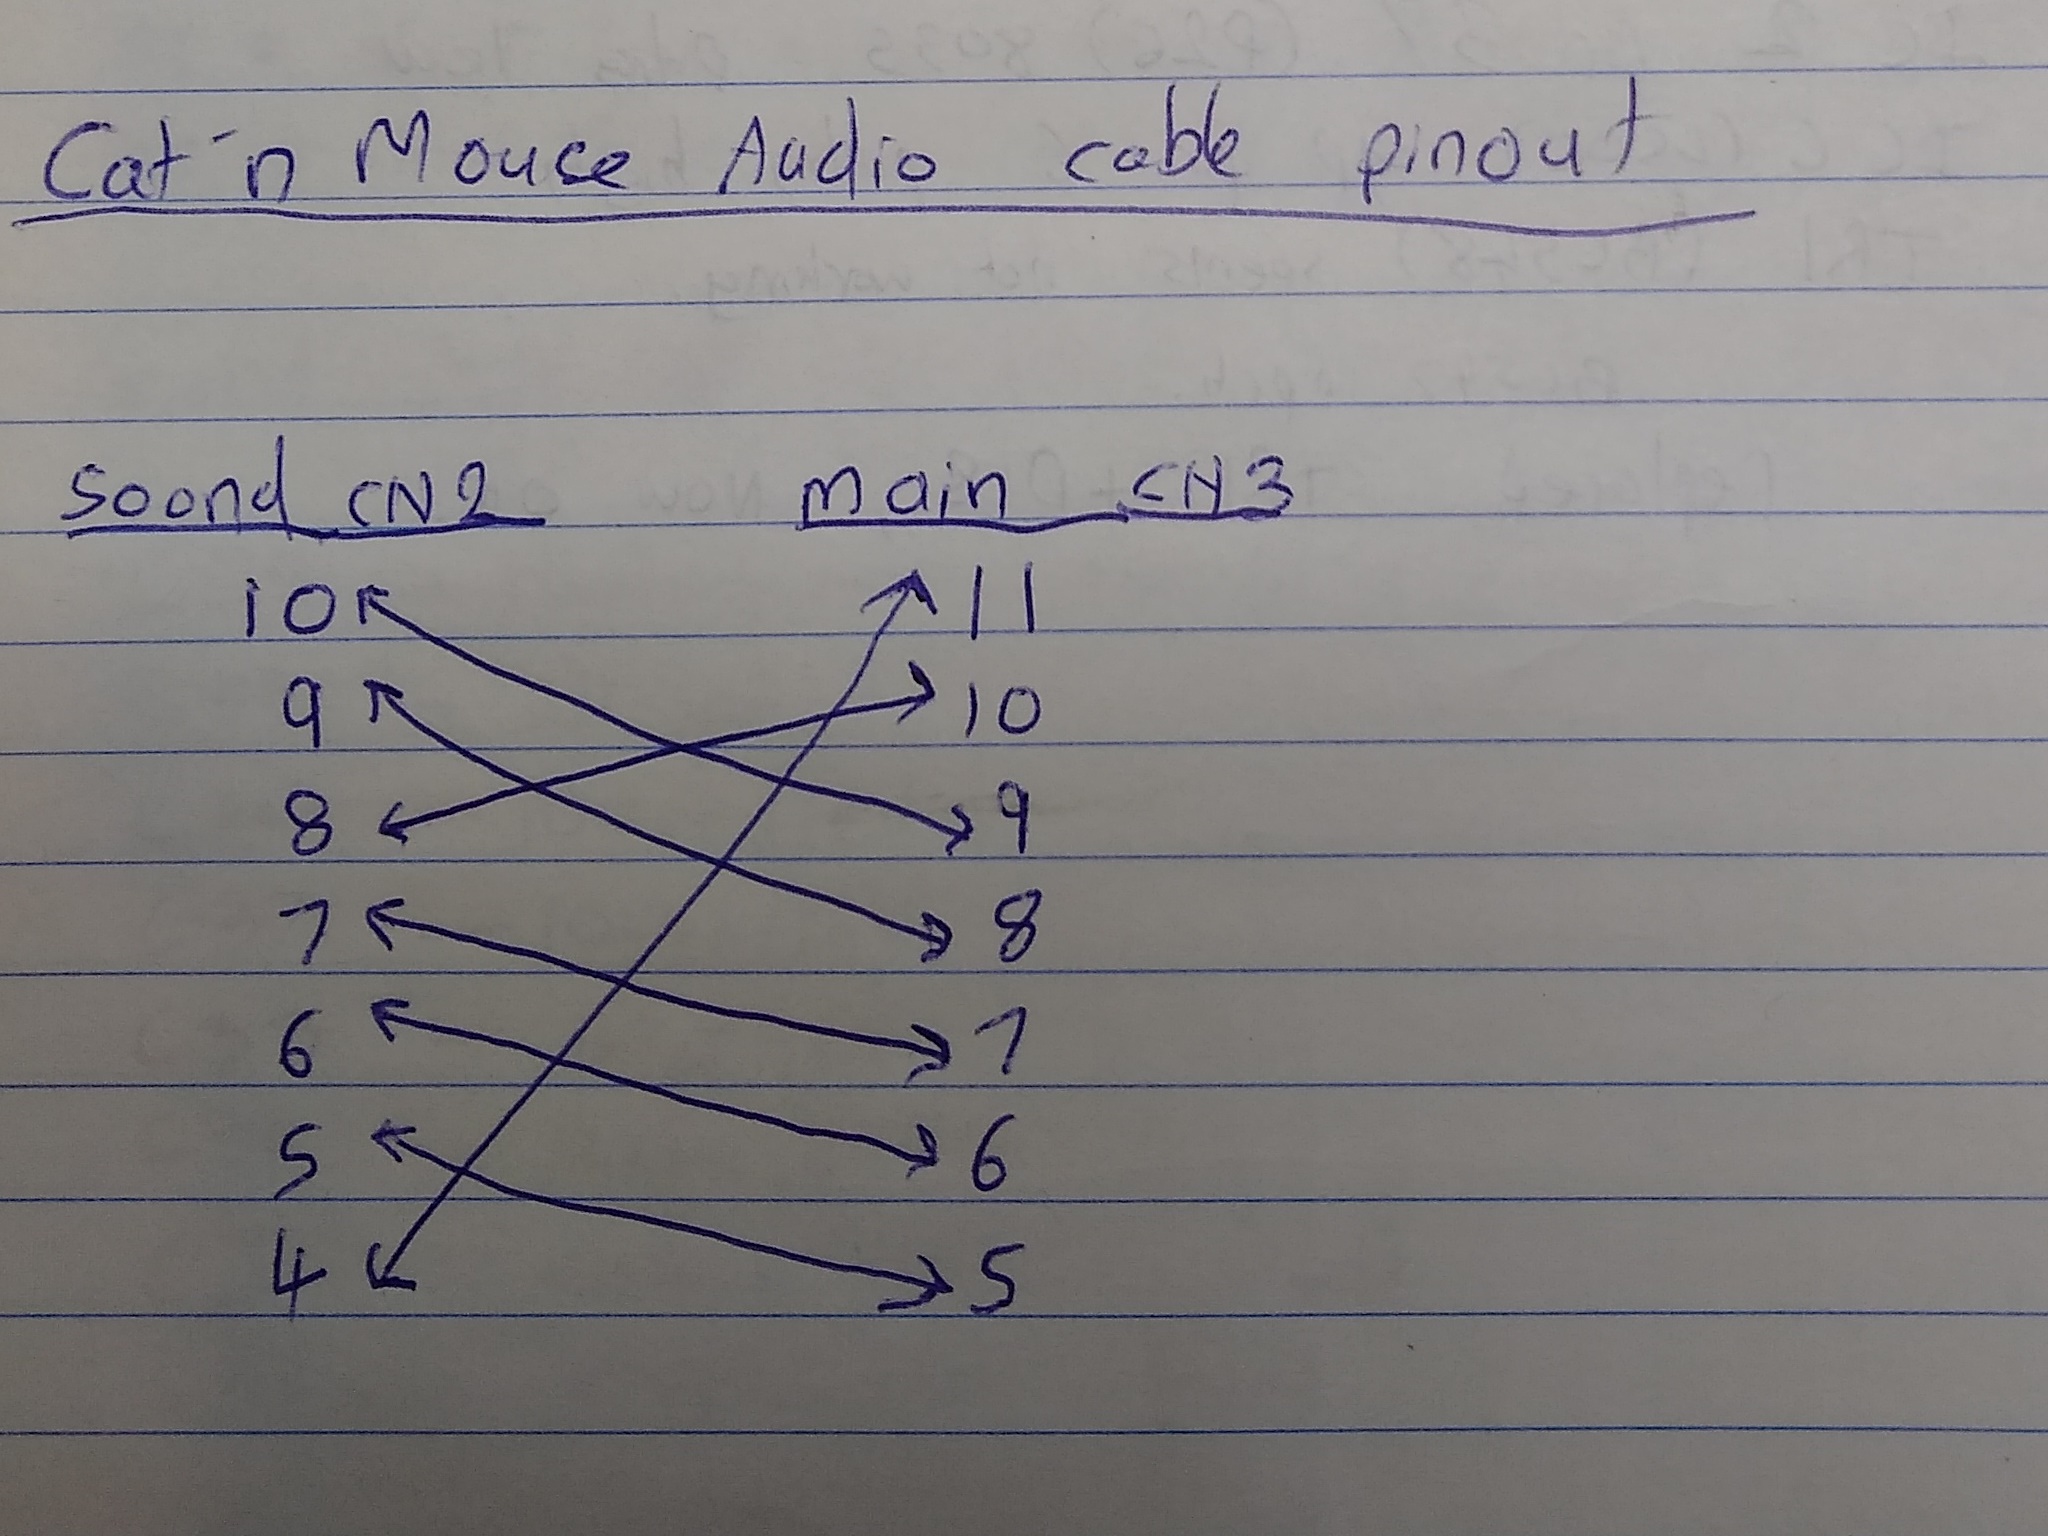 Cat'n Mouse Audio cable pinout
Soond CN2 main CN3
10 11
9 10
8 9
7 8
6 7
5 6
4 5